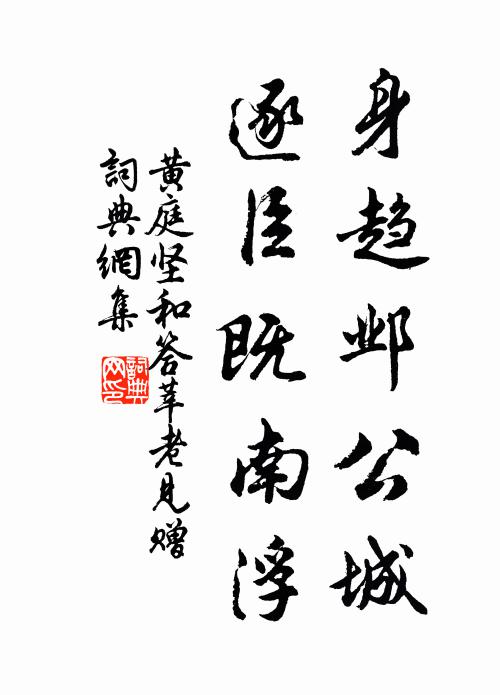 身趋邺公城
逐臣既南浮
黄庭坚和答莘老见赠
詞典網集
詞典网印